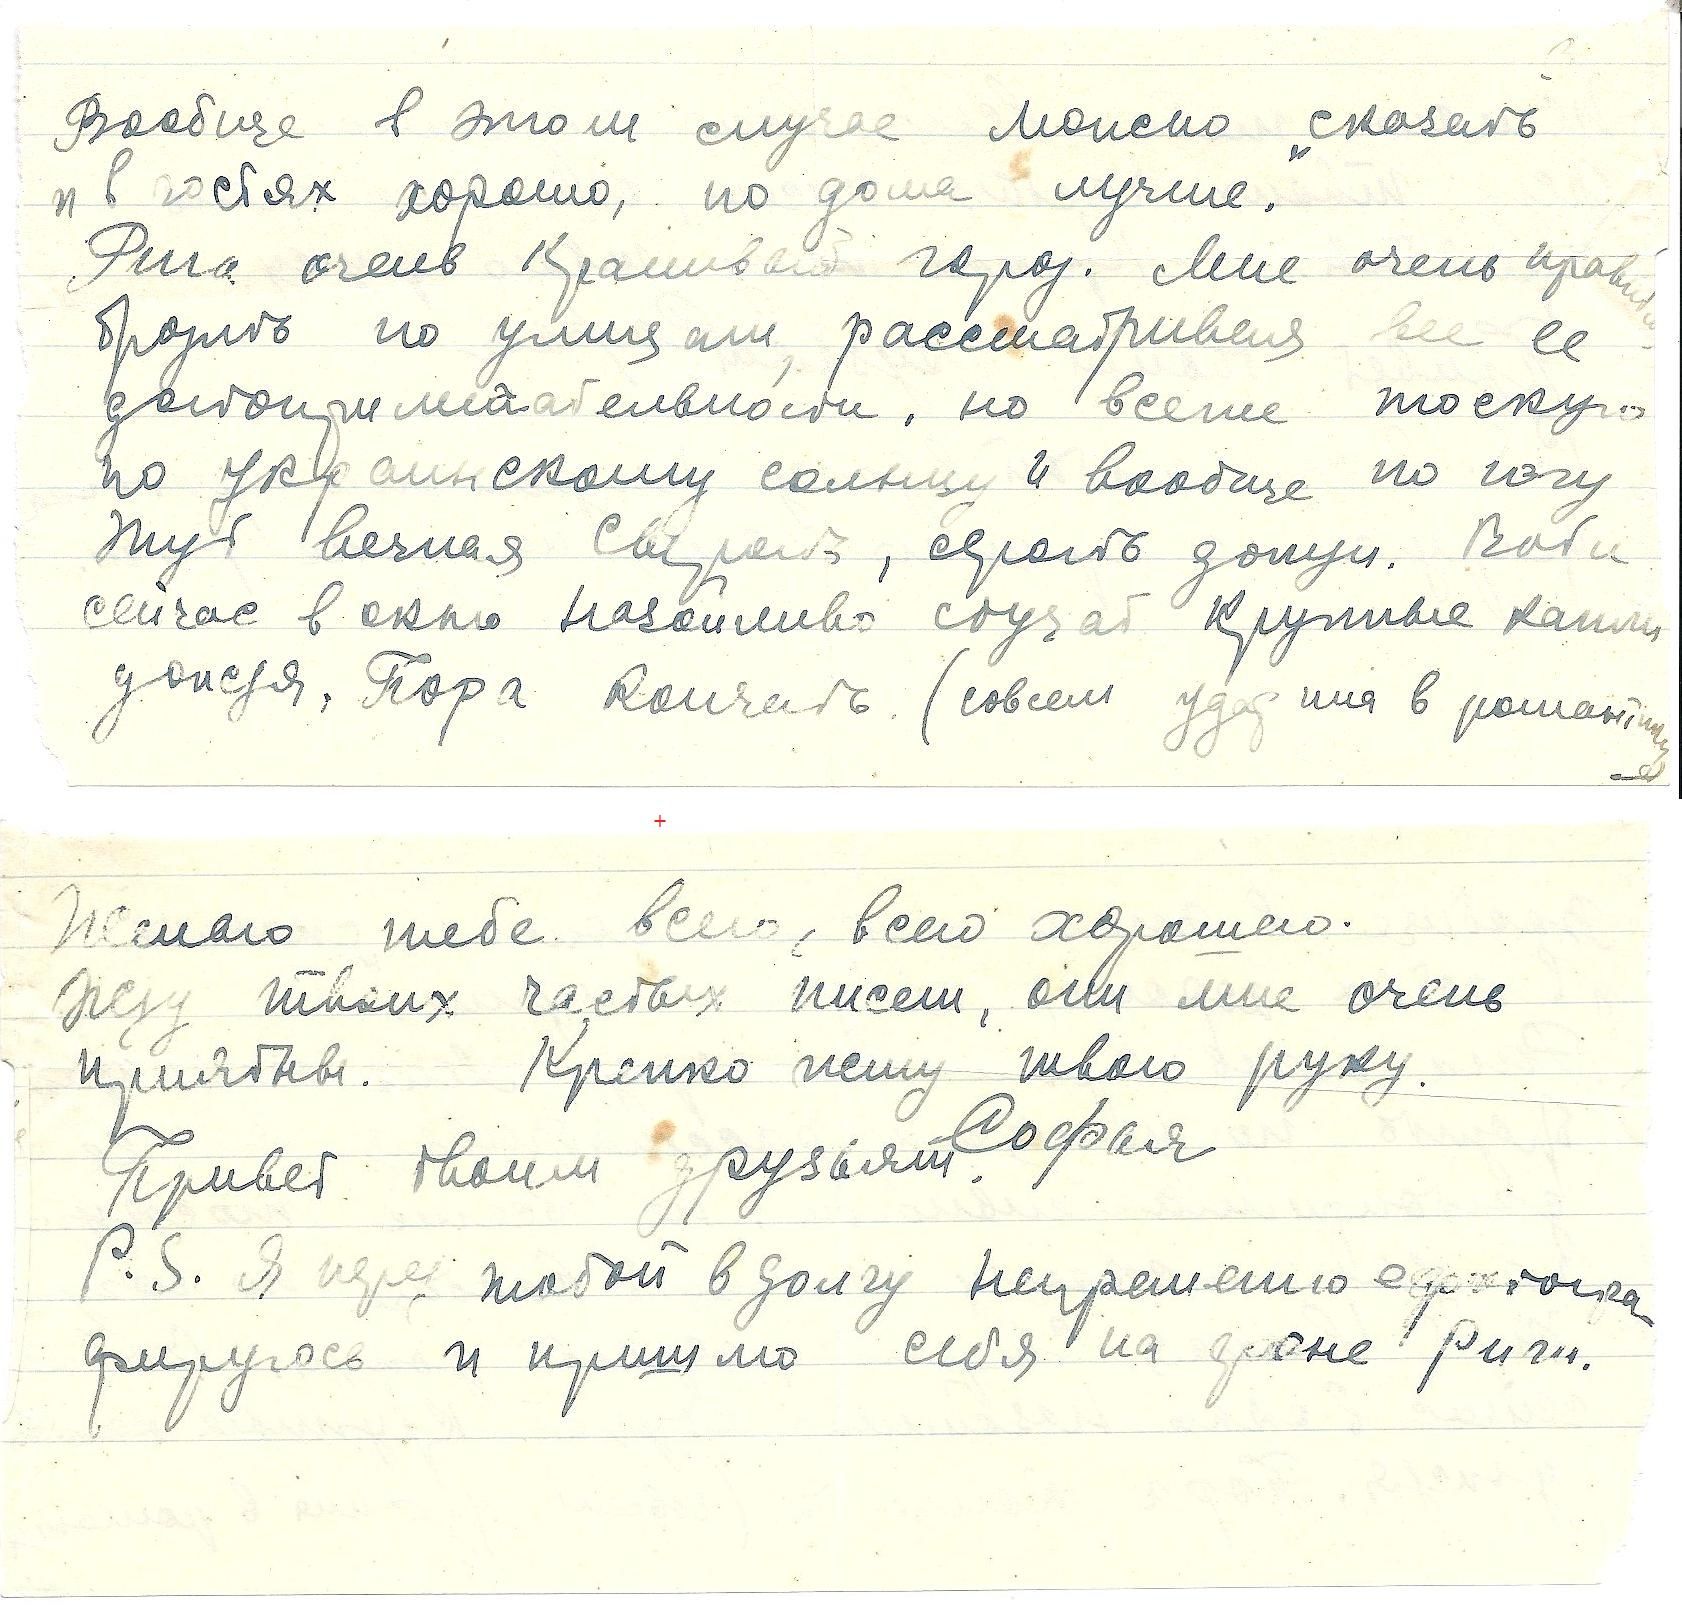 Вообще в этом случае можно „сказать
и в гостях хорошо, но дома лучше."
Рига очень красивый город. Мне очень нравится
бродить по улицам, рассматривая все ее
достопримечательности, но всеже тоскую
по украинскому солнцу и вообще по югу
Тут вечная сырость, серость дожди. Вот и
сейчас в окно назойливо стучат крупные капли
дождя. Пора кончать. (совсем ударилась в романтику)
Желаю тебе всего, всего хорошего.
Жду твоих частых писем, они мне очень
приятны. Крепко жму твою руку.
Софья
Привет твоим друзьям.
P.S. Я перед тобой в долгу непременно сфотогра
фируюсь и пришлю себя на фоне Риги.